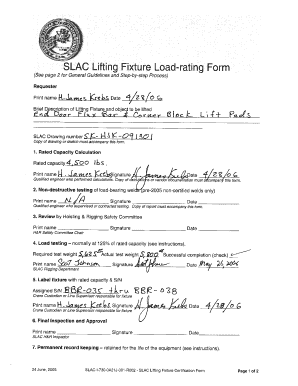 SLAC Lifting Fixture Load-rating Form
(See page 2 for General Guidelines and Step-by-step Process)
Requester
Print name H. James Krebs Date 4/28/06
Brief Description of Lifting Fixture and object to be lifted
End Door Flux Bar & Corner Block Lift Pads
SLAC Drawing number SK-HSK-091301
Copy of drawing or sketch must accompany this form.
1. Rated Capacity Calculation
Rated capacity 4,500 lbs.
Print name H. James Krebs Signature H James Krebs Date 4/28/06
Qualified engineer who performed calculations. Copy of calculations or vendor documentation must accompany this form.
2. Non-destructive testing of load-bearing welds (pre-2005 non-certified welds only)
Print name N/A Signature Date
Qualified engineer who supervised or contracted testing. Copy of report must accompany this form.
3. Review by Hoisting & Rigging Safety Committee
Print name Signature Date
H&R Safety Committee Chair
4. Load testing – normally at 125% of rated capacity (see instructions).
Required test weight 5,625# Actual test weight 5,800# Successful completion (check) ✓
Print name Scot Johnson Signature Date May 26, 2006
SLAC Rigging Department
5. Label fixture with rated capacity & S/N
Assigned S/N BBR-035 thru BBR-038
Crane Custodian or Line Supervisor responsible for fixture
Print name H. James Krebs Signature H James Krebs Date 4/28/06
Crane Custodian or Line Supervisor responsible for fixture
6. Final Inspection and Approval
Print name Signature Date
SLAC H&R Inspector
7. Permanent record keeping – retained for the life of the equipment (see instructions).
24 June, 2005 SLAC-I-730-0A21J-001-R002 - SLAC Lifting Fixture Certification Form Page 1 of 2